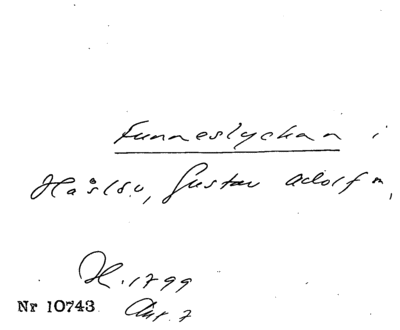 Funneslyckan i
Håslöv, Gustav Adolf m,
H. 1799
Nr 10743